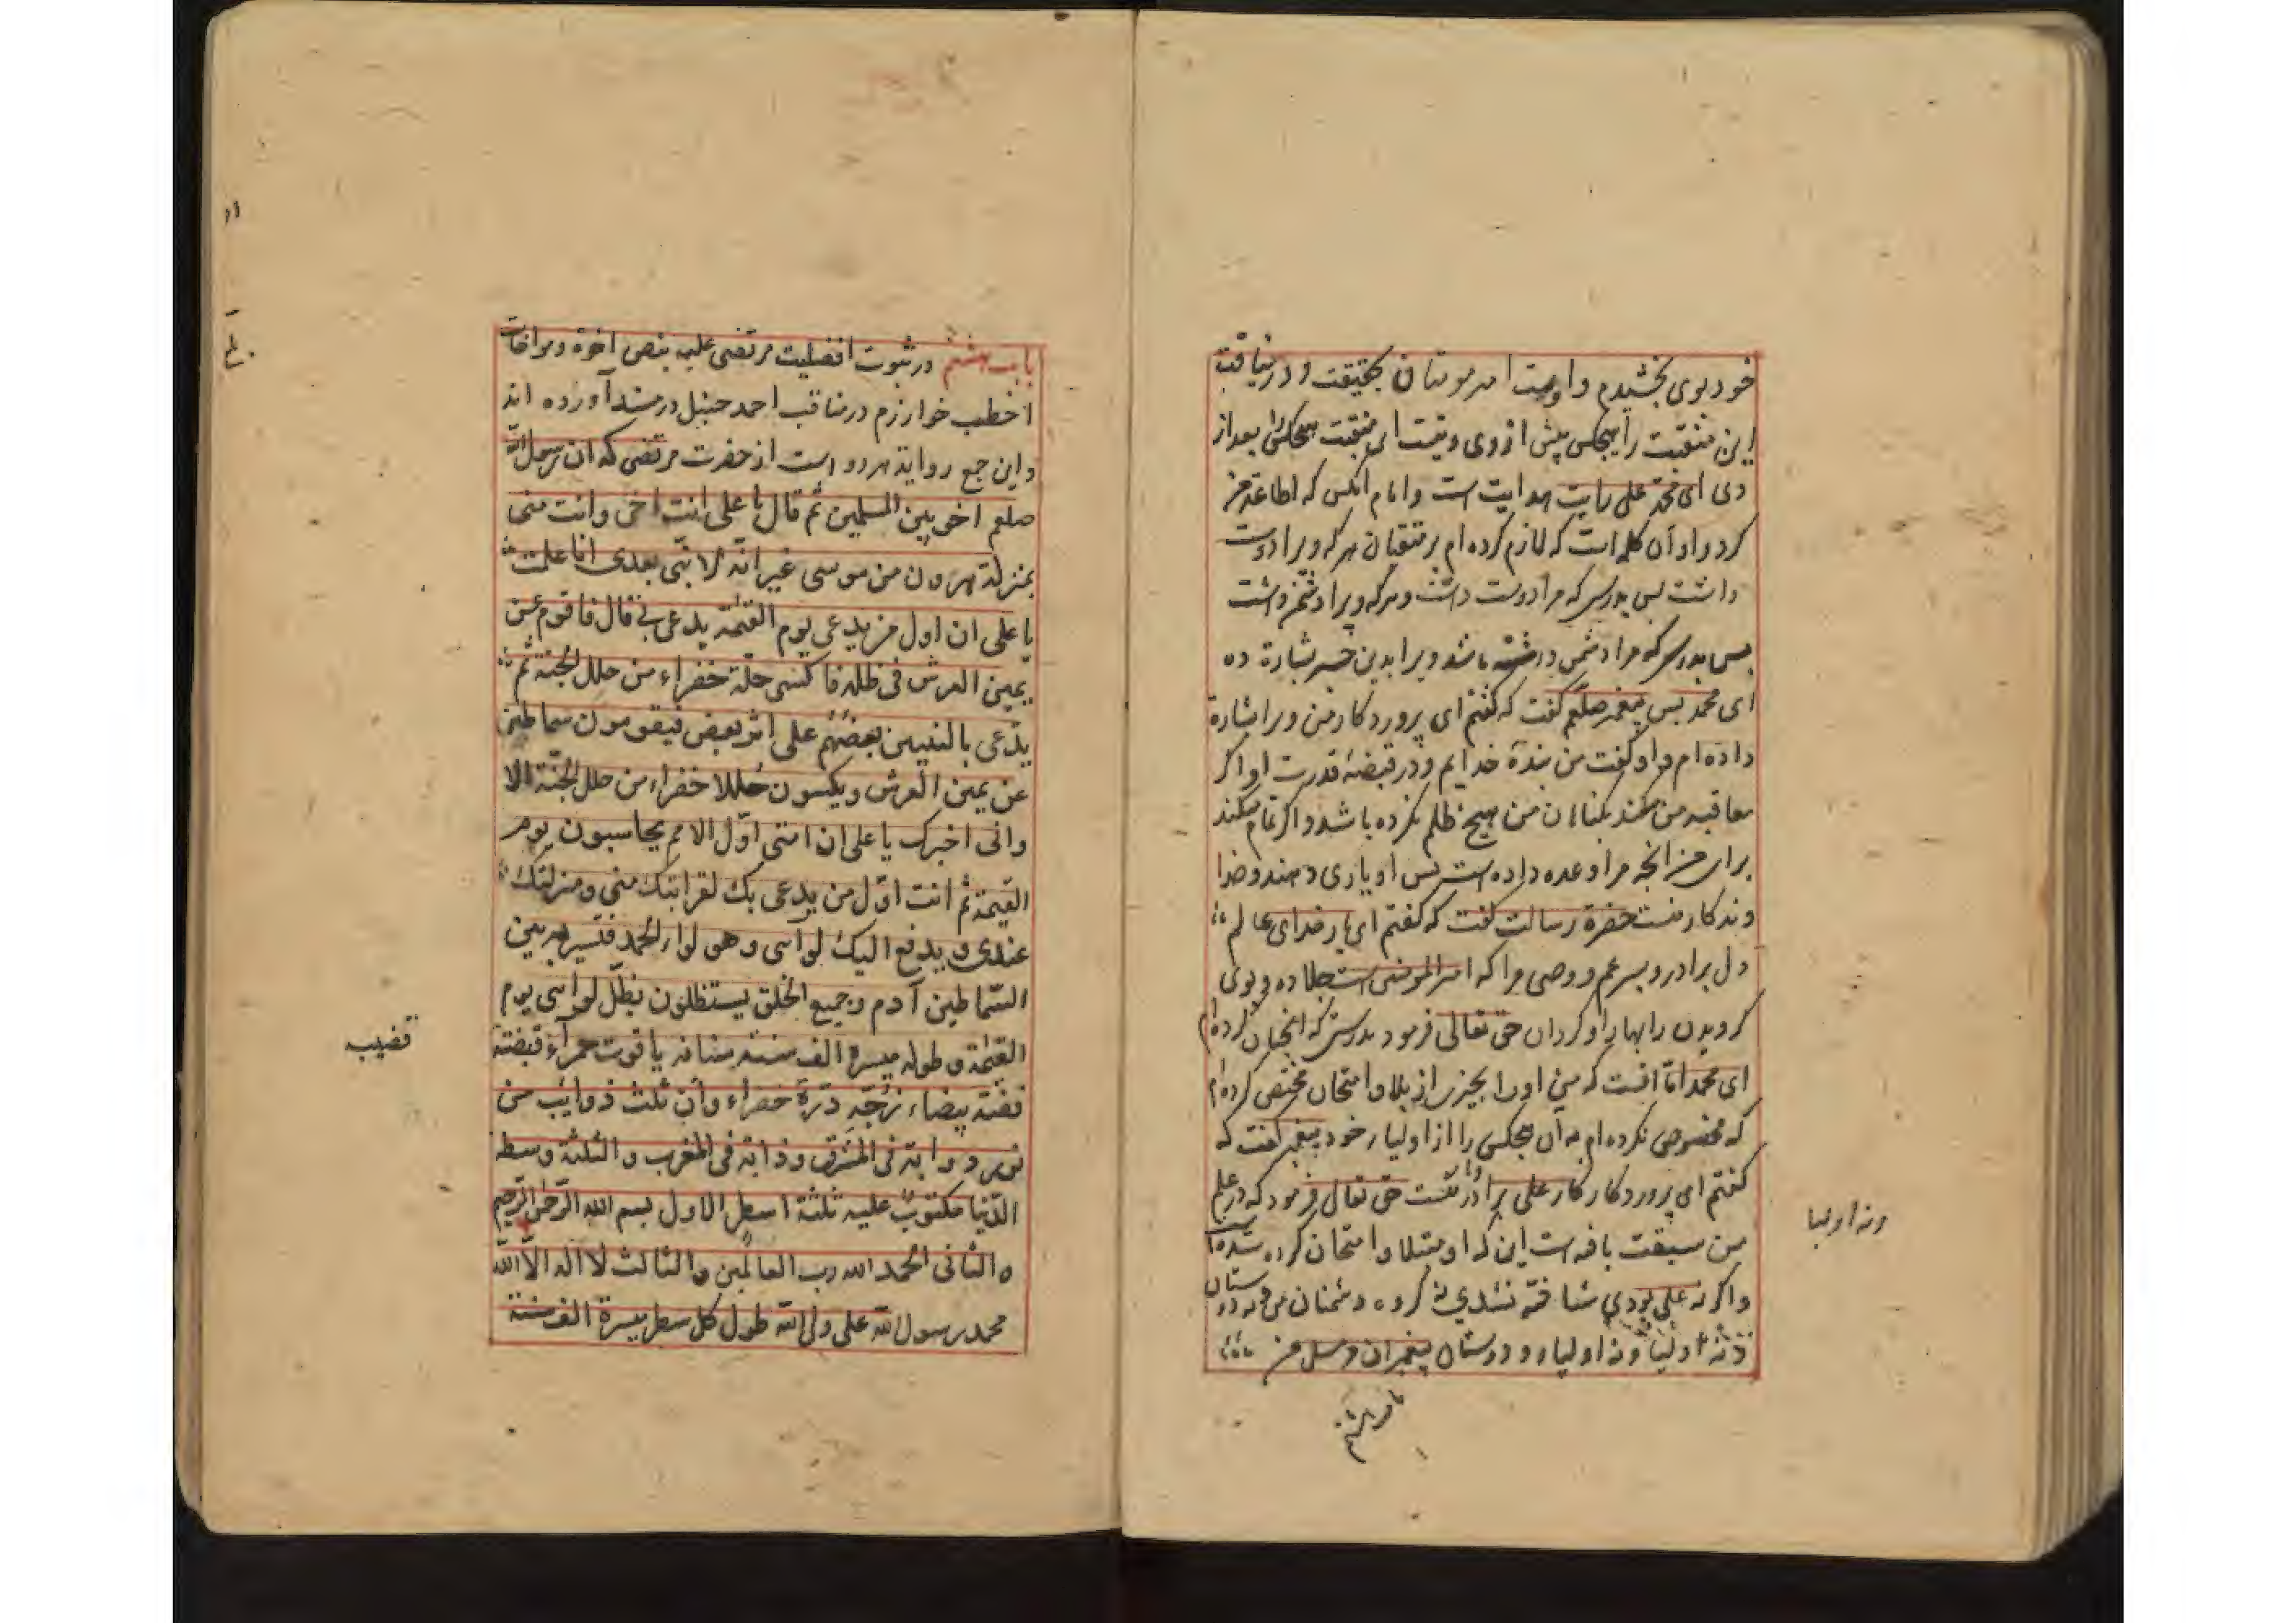 خود بوی بخشیدم و اوست امیر مومنان بحقیقت و در نیافت
این منقبت را هیچکس پیش از وی و نیست این منقبت هیچکس را بعد از
وی ای محمد علی رایت هدایت است و امام آنکس که اطاعة من
کرد و او آن کلمه است که لازم کرده ام بر متقیان هر که ویرا دوست
داشت پس بدرستی که مرا دوست داشت و هر که ویرا دشمن داشت
پس بدرستی که مرا دشمن داشته باشد ویرا بدین خبر بشارة ده
ای محمد پس پیغمبر صلعم گفت که گفتم ای پروردکار من ویرا بشارة
داده ام و او گفت من بندۀ خدایم و در قبضۀ قدرت او اگر
معاقبه من کند بکناهان من هیچ ظلم نکرده باشد و اگر تمام میکند
برای من آنچه مرا وعده داده است پس او یاری دهنده و خدا
وندکار منست حضرة رسالت گفت که گفتم ای بار خدای عالم
دل برادر و پسر عم و وصی مرا که امیر المومنین است جلا ده و بوی
کرویدن را بهار او کردان حق تعالی فرمود بدرستی که انچنان کرده ام
ای محمد اما آنست که من او را بچیزی از بلا و امتحان مختص کرده ام
که مخصوص نکرده ام به آن هیچکس را از اولیاء خود پیغمبر گفت که
گفتم ای پروردکار کار علی برادر منست حق تعالی فرمود که در علم
من سبقت یافته است این که او مبتلا و امتحان کرده شده است
و اگر نه علی بودی شناخته نشدی نه کروه دشمنان من و نه دوستان
و نه اولیاء و دوستان پیغمبران مرسل من
ونه اولیا
باب هشتم
باب هشتم در ثبوت افضلیت مرتضی علیه بنص اخوة ومواخات
اخطب خوارزم در مناقب احمد حنبل در مسند آورده اند
و این جمع روایة هر دو است از حضرت مرتضی که ان رسول الله
صلعم اخو بین المسلمین ثم قال یا علی انت اخی وانت منی
بمنزلة هرون من موسی غیر انّه لا نبی بعدی اما علمت
یا علی ان اول من یدعی یوم القیمة یدعی بی قال فاقوم عن
یمین العرش فی ظله فاکسی حلّة خضراء من حلل الجنة ثم
یدعی بالنبیین بعضهم علی اثر بعض فیقومون سماطین
عن یمین العرش ویکسون حللا خضراء من حلل الجنّة الا
وانی اخبرک یا علی ان امتی اوّل الامم یحاسبون یوم
القیمة ثم انت اوّل من یدعی بک لقرابتک منی ومنزلتک
عندی و یدفع الیک لوآئی وهو لواء الحمد فتسیر به بین
السّماطین آدم وجمیع الخلق یستظلون بظلّ لوائی یوم
القیمة وطوله میسرة الف سنة سنانه یاقوت حمرآء قبضته
فضة بیضاء زجّه درّة خضراء وله ثلث ذوایب من
نور ذوابة فی المشرق وذوابة فی المغرب والثلثة وسط
الدّنیا مکتوب علیه ثلثة اسطر الاول بسم الله الرّحمن الرّحیم
والثانی الحمد الله رب العالمین والثالث لا اله الا الله
محمد رسول الله علی ولی الله طول کل سطر میسرة الف سنة
قضیب